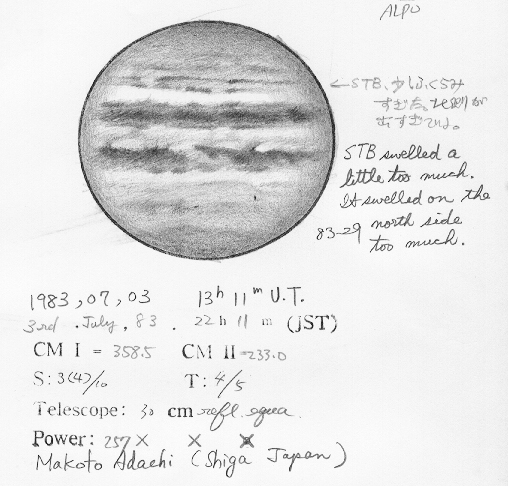 ALPO
←STB、少しふくらみ
すぎた。北側が
むすぎでは。
STB swelled a
little too much.
It swelled on the
83-29 north side
too much.
1983,07,03 13h 11m U.T.
3rd .July, 83. 22h 11m (JST)
CM I = 358.5 CM II =233.0
S: 3(4)/10 T: 4/5
Telescope: 30 cm refl. equa.
Power: 257× × ×
Makoto Adachi (Shiga Japan)